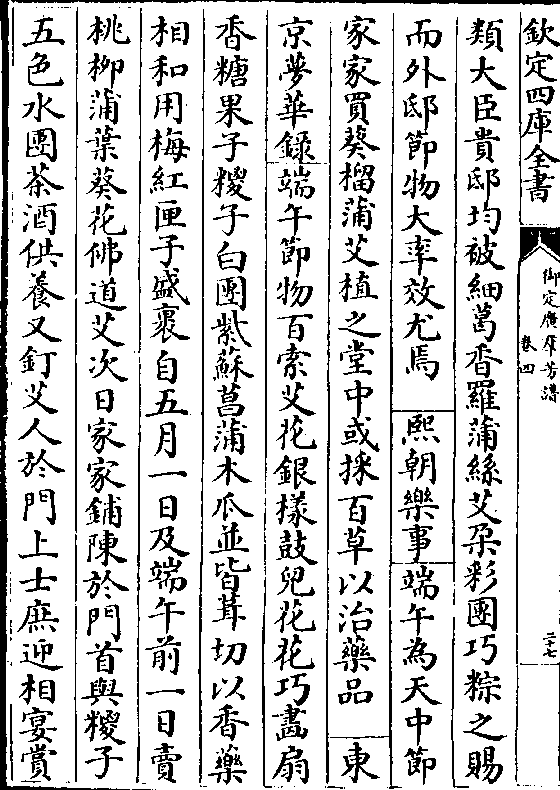 欽定四庫全書
御定廣羣芳譜
卷四
二十七
類大臣貴邸均被細葛香羅蒲絲艾朶彩團巧粽之賜
而外邸節物大率效尤焉 熙朝樂事端午為天中節
家家買葵榴蒲艾植之堂中或採百草以治藥品 東
京夢華錄端午節物百索艾花銀樣鼓兒花花巧畫扇
香糖果子糉子白團紫蘇菖蒲木瓜並皆茸切以香藥
相和用梅紅匣子盛裹自五月一日及端午前一日賣
桃柳蒲葉葵花佛道艾次日家家鋪陳於門首與糉子
五色水團茶酒供養又釘艾人於門上士庶迎相宴賞